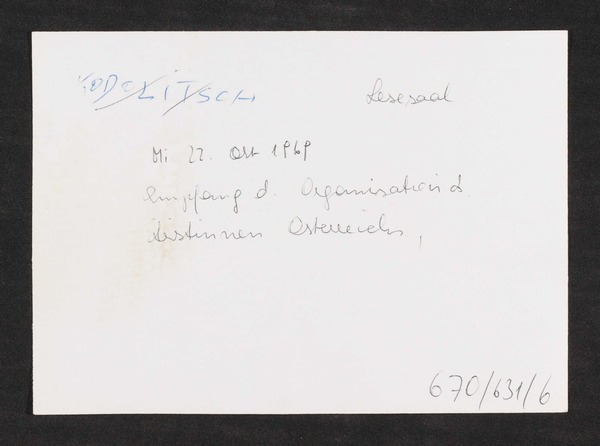 KODOLITSCH Lesesaal
Mi 22. Okt 1969
Empfang d. Organisation d.
Ärztinnen Österreichs,
670/631/6